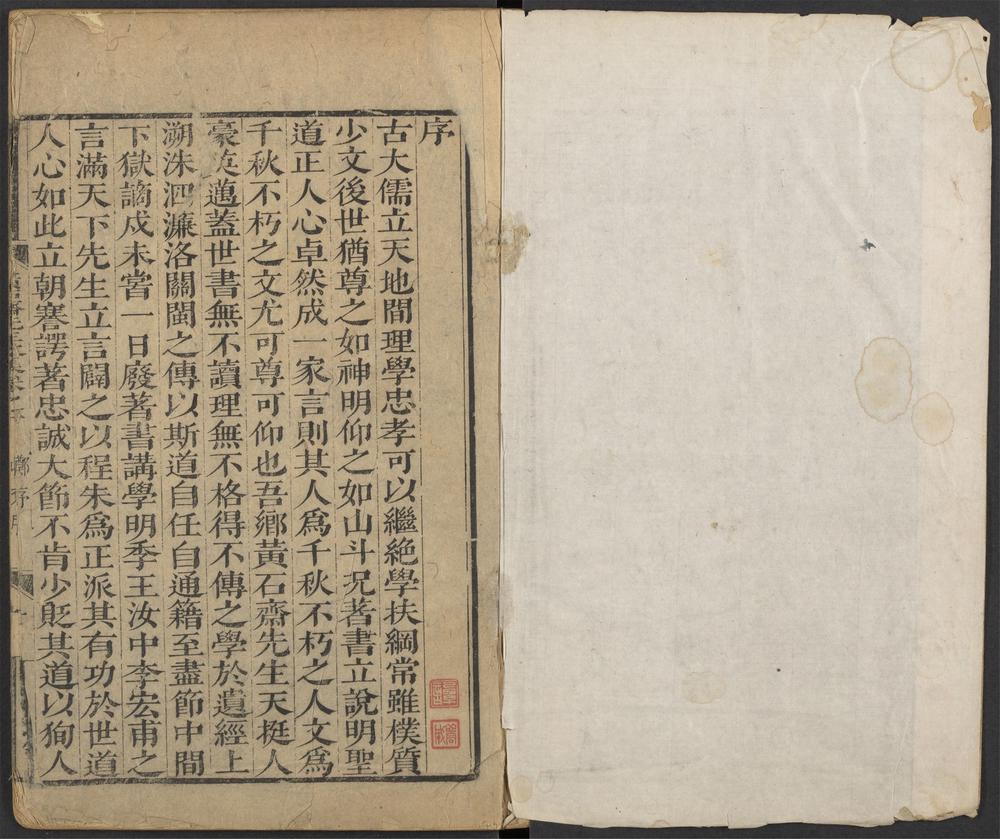 序
古大儒立天地間理學忠孝可以繼絶學扶綱常雖樸質
少文後世猶尊之如神明仰之如山斗况著書立說明聖
道正人心卓然成一家言則其人爲千秋不朽之人文爲
千秋不朽之文尤可尊可仰也吾鄉黃石齋先生天挺人
豪英邁蓋世書無不讀理無不格得不傳之學於遺經上
溯洙泗濂洛關閩之傳以斯道自任自通籍至盡節中間
下獄謫戍未嘗一日廢著書講學明季王汝中李宏甫之
言滿天下先生立言闢之以程朱爲正派其有功於世道
人心如此立朝謇諤著忠誠大節不肯少貶其道以狥人
鄭序
一